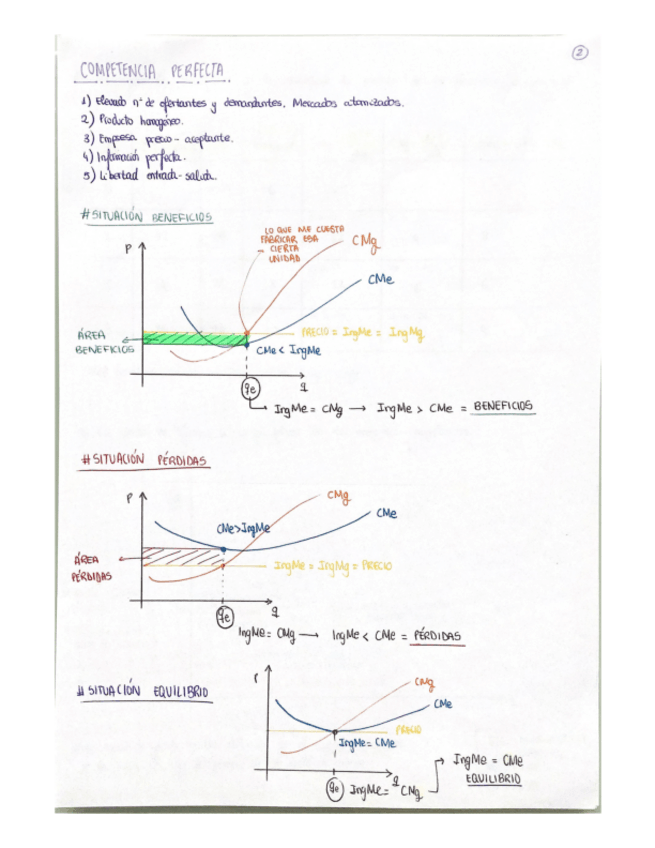 2
COMPETENCIA PERFECTA.
1) Elevado nº de ofertantes y demandantes. Mercados atomizados.
2) Producto homogéneo.
3) Empresa precio-aceptante.
4) Información perfecta.
5) Libertad entrada-salida.
#SITUACIÓN BENEFICIOS
LO QUE ME CUESTA
FABRICAR ESA
CIERTA
UNIDAD
P
CMg
CMe
ÁREA
BENEFICIOS
PRECIO = IngMe = IngMg
CMe < IngMe
qe
q
IngMe = CMg → IngMe > CMe = BENEFICIOS
#SITUACIÓN PÉRDIDAS
P
CMg
CMe
CMe>IngMe
ÁREA
PÉRDIDAS
IngMe = IngMg = PRECIO
qe
q
IngMe = CMg → IngMe < CMe = PÉRDIDAS
# SITUACIÓN EQUILIBRIO
CMg
CMe
PRECIO
IngMe = CMe
q
qe
IngMe = CMg
IngMe = CMe
EQUILIBRIO